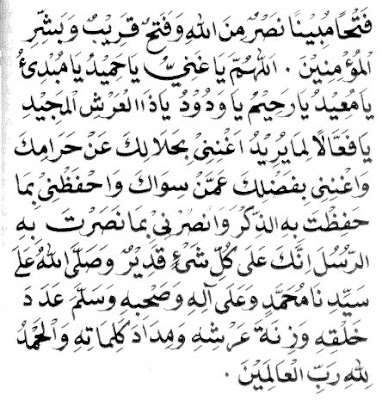 فَتْحًا مُبِينًا نَصْرٌ مِنَ اللهِ وَفَتْحٌ قَرِيْبٌ وَبَشِّرِ
الْمُؤْمِنِيْنَ . اللهُمَّ يَا غَنِيُّ يَا حَمِيْدُ يَا مُبْدِئُ
يَا مُعِيْدُ يَا رَحِيْمُ يَا وَدُوْدُ يَا ذَا الْعَرْشِ الْمَجِيْدِ
يَا فَعَّالًا لِمَا يُرِيْدُ اَغْنِنِيْ بِحَلَالِكَ عَنْ حَرَامِكَ
وَاغْنِنِيْ بِفَضْلِكَ عَمَّنْ سِوَاكَ وَاحْفَظْنِيْ بِمَا
حَفِظْتَ بِهِ الذِّكْرَ وَانْصُرْنِيْ بِمَا نَصَرْتَ بِهِ
الرُّسُلَ اِنَّكَ عَلَى كُلِّ شَيْءٍ قَدِيْرٌ وَصَلَّى اللهُ عَلَى
سَيِّدِنَا مُحَمَّدٍ وَعَلَى آلِهِ وَصَحْبِهِ وَسَلَّمَ عَدَدَ
خَلْقِهِ وَزِنَةَ عَرْشِهِ وَمِدَادَ كَلِمَاتِهِ وَالْحَمْدُ
لِلهِ رَبِّ الْعَالَمِيْنَ .